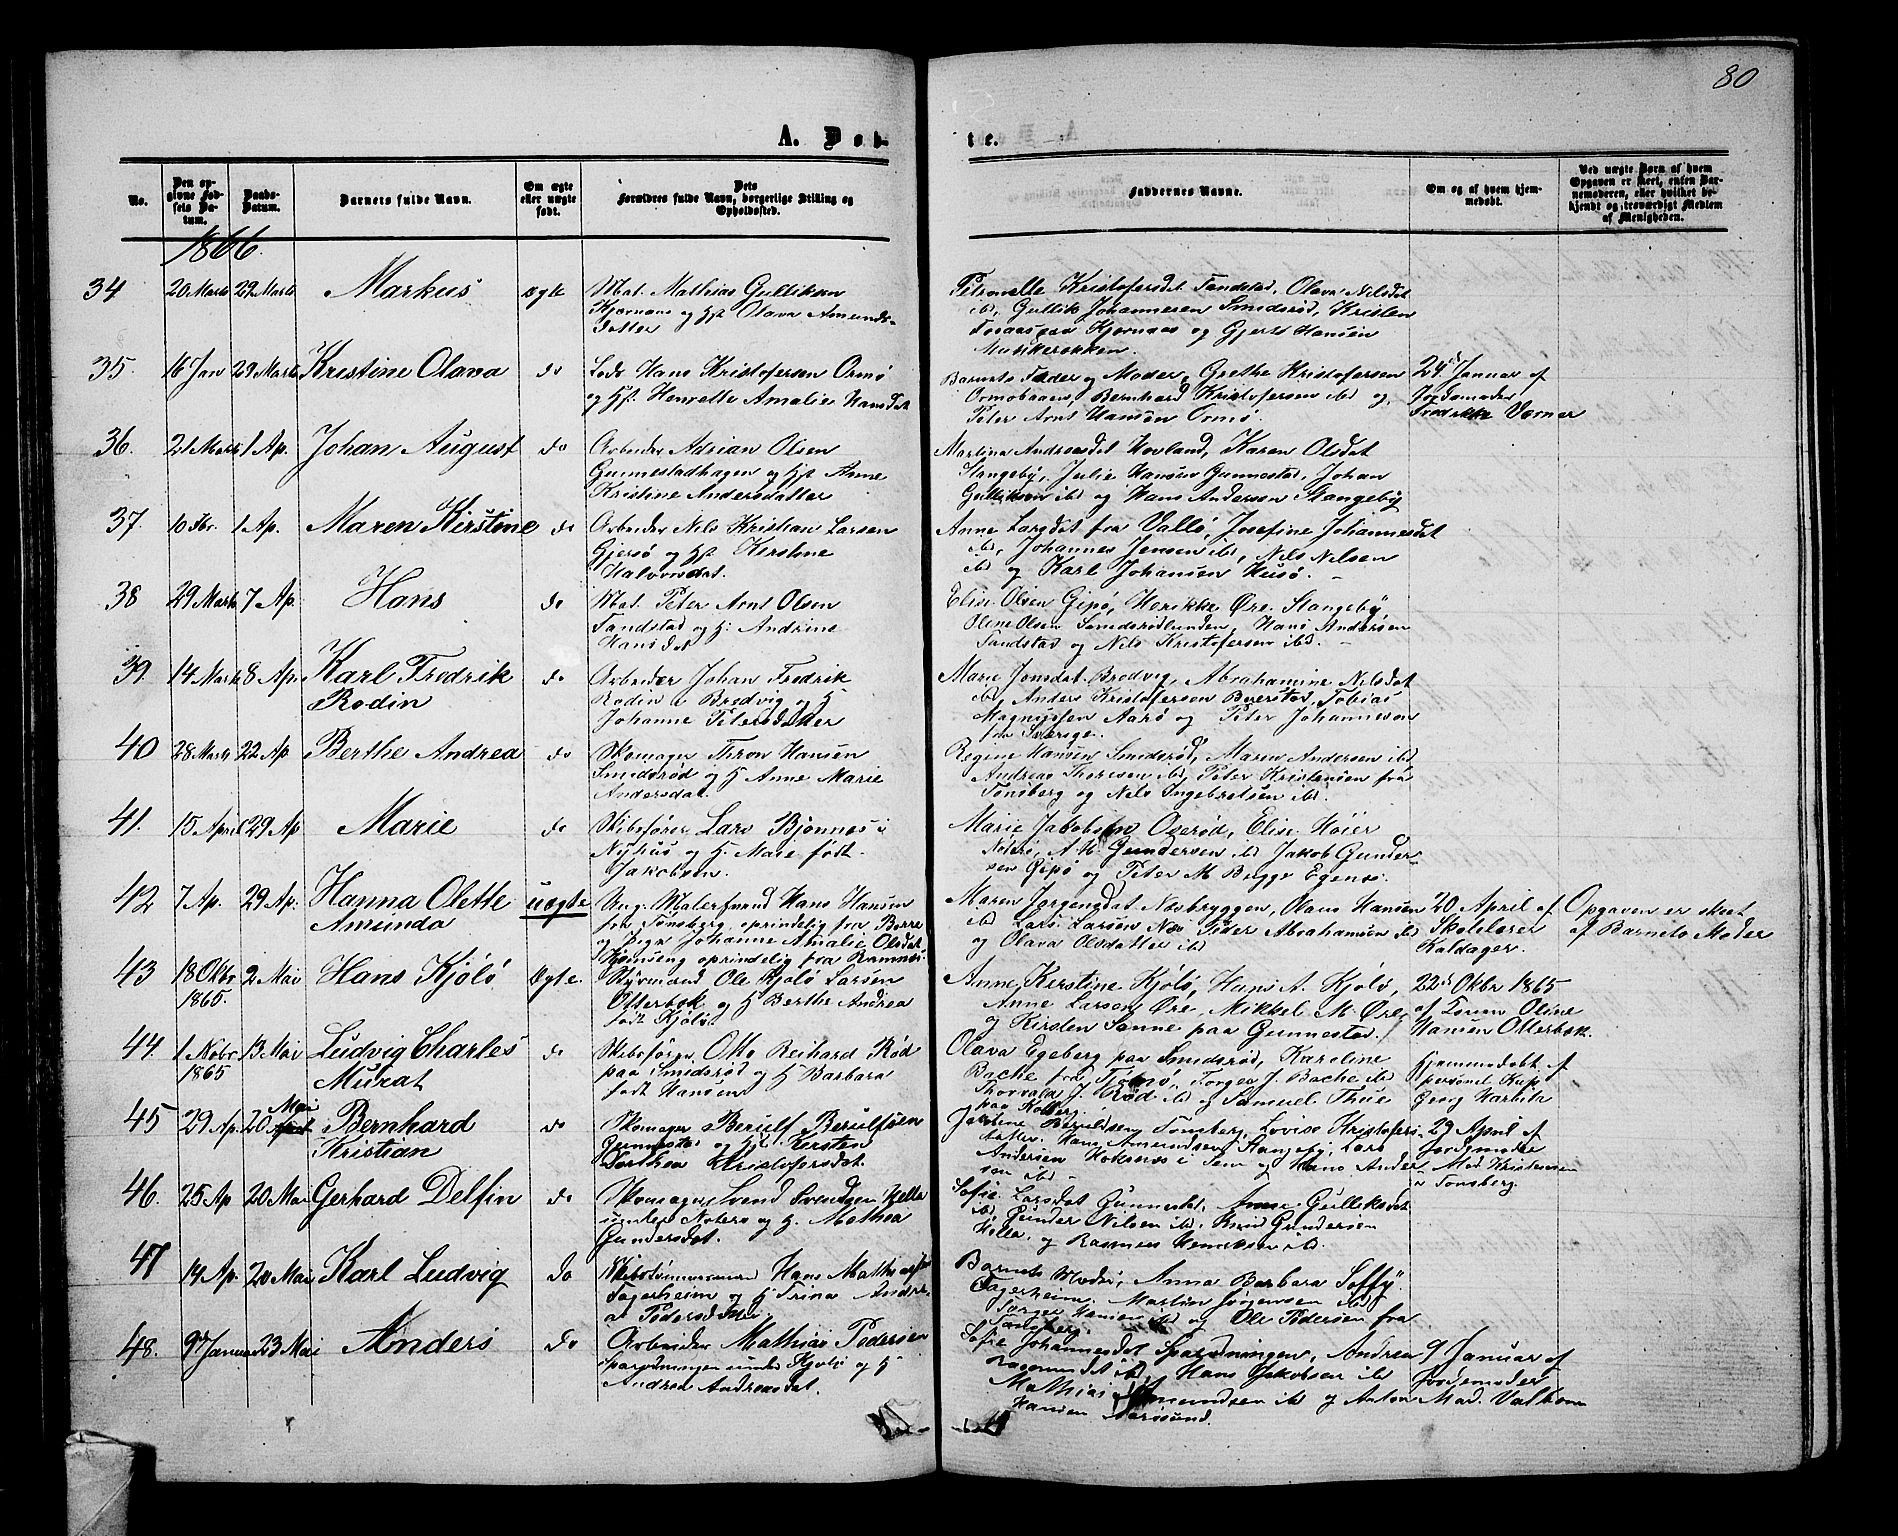 80
A. Døb-
te.
No.
Den opgivne Fødsels Datum.
Daabs-Datum.
Barnets fulde Navn.
Om ægte eller uægte født.
Dets Forældres fulde Navn, borgerlige Stilling og Opholdssted.
Faddernes Navne.
Om og af hvem hjemmedøbt.
Ved uægte Børn af hvem Opgaven er skeet, enten Barnemoderen, eller hvilket bekjendt og troværdigt Medlem af Menigheden.
1866.
34 20 Marts 29 Marts Markus ægte
Mat. Mathias Gulliksen
Kjørnaas og H. Olava Amunds-
datter
Petronelle Kristofersdat Tandstad, Olava Nilsdat
ibd, Gullik Johannesen Smidsrød, Kristen
paa Kjørnaas og Gjert Hansen
35. 16 Jan 29 Marts Kristine Olava do
Lods Hans Kristofersen Ormø
og H. Henrette Amalie Hansdat
Barnets Fader og Moder, Grethe Kristofersen
Ormobaaen, Bernhard Kristofersen ibd og
Peter Arnt Hansen Ormø
24de Januar af
Jordemoder
Fredrikke Værner
36. 21 Marts 1 Ap. Johan August do
Arbeider Adrian Olsen
Gunnestadhagen og H. Anne
Kristine Andersdatter
Martina Andreasdat Hovland, Karen Olsdat
Stangeby, Julie Hansen Gunnestad, Johan
Gulliksen ibd og Hans Andersen Stangeby
37. 10 Fbr. 1 Ap. Maren Kirstine do
Arbeider Nils Kristian Larsen
Gjersø og H. Kerstine
Halvorsdat.
Anne Larsdat fra Vallø, Josefine Johannesdat
ibd, Johannes Jensen ibd, Nils Nilsen
ibd og Karl Johansen Husø.
38 29 Marts 7 Ap. Hans do
Mat. Peter Arnt Olsen
Tandstad og H. Andrine
Hansdat
Elise Olsen Gipø, Henrikke Øre Stangeby,
Oline Olsen Smidsrødlunden, Hans Andersen
Tandstad og Nils Kristofersen ibd.
39. 14 Marts 8 Ap. Karl Fredrik
Rodin do
Arbeider Johan Fredrik
Rodin i Bredvig og H
Johanne Petersdatter
Marie Jonsdat Bredvig, Abrahamine Nilsdat
ibd, Anders Kristofersen Buerstad, Tobias
Magnussen Aarø og Peter Johannesen
fra Sverige.
40 28 Marts 22 Ap Berthe Andrea do
Skomager Thron Hansen
Smidsrød og H Anne Marie
Andersdat.
Regine Hansen Smidsrød, Maren Andersen ibd
Andreas Thoresen ibd, Peter Kristensen fra
Tønsberg og Nils Ingebretsen ibd.
41. 15 April 29 Ap Marie do
Skibsfører Lars Bjønnes i
Nyhus og H. Marie født
Jakobsen.
Marie Jakobsen Oserød, Elise Høier
Nøterø, A. H. Gundersen ibd Jakob Gunder-
sen Gipø og Peter M Bugge Egenes.
42 7 Ap. 29 Ap. Hanna Olette
Amunda uægte
Ung. Malersvend Hans Hansen
fra Tønsberg, oprindelig fra Borre
og Pige Johanne Amalie Olsdat
oprindelig fra Ramnæs.
Maren Jørgensdat Næsbryggen, Olaus Hansen
ibd Lars Larsen Næs, Peder Abrahamsen ibd
og Olava Olsdatter ibd
20 April af
Skolelærer
Kaldager.
Opgaven er skeet
af Barnets Moder
43 18 Oktbr 1865. 2 Mai Hans Kjøló ægte.
Styrmand Ole Kjølø Larsen
Otterbæk og H Berthe Andrea
født Kjølø.
Anne Kerstine Kjølø, Hans A. Kjølø,
Anne Larsen Øre, Mikkel M. Øre
og Kirsten Sanne paa Gunnestad.
22de Oktbr 1865
af Oline
Hansen Otterbæk.
44. 1 Novbr 1865 13 Mai Ludvig Charles
Murat do
Skibsfører Otto Reihard Rød
paa Smidsrød og H Barbara
født Hansen
Olava Egeberg paa Smidsrød, Karoline
Bache fra Tjømø, Torger J. Bache ibd
Thorvald J. Rød ibd og Samuel Thue
hjemmedøbt af
45 29 Ap. 20 Mai Bernhard
Kristian do
Skomager Berulf Berulfsen
Gunnestad og H. Kersten
Dorthea Kristofersdat.
Tønsberg, Lovise Kristofers-
datter. Hans Amundsen Stangeby, Lars
Andersen i Sem og Hans Ander-
sen ibd
29 April af
Jordemoder
Mad. Kristensen
i Tønsberg.
46. 25 Ap 20 Mai Gerhard Delfin do
Skomager Svend Svendsen Hella
under Nøterø og H. Mathea
Gundersdat.
Sofie Larsdat Gunnestd, Anne Gulliksdat
ibd, Gunder Nilsen ibd, Knud Gundersen
Hella, og Rasmus Henriksen ibd.
47 14 Ap. 20 Mai Karl Ludvig do
Skibstømmermand Hans Mathiasen
Fagerheim og H Trina Andre-
a Pedersdatter
Barnets Moder, Anna Barbara Toffy
Fagerheim. Martin Jørgensen ibd
Torger Hansen ibd og Ole Pedersen fra
Tønsberg.
48. 9de Januar 23 Mai Anders do
Arbeider Mathias Pedersen
under Kjølø og H
Andrea Andreasdat.
Sofie Johannesdat Andrea
ibd, Hans Jakobsen ibd
Mathias Amundsen ibd og Anton
Hansen Aarøsund.
9 Januar af
Jordemoder
Mad. Valbom